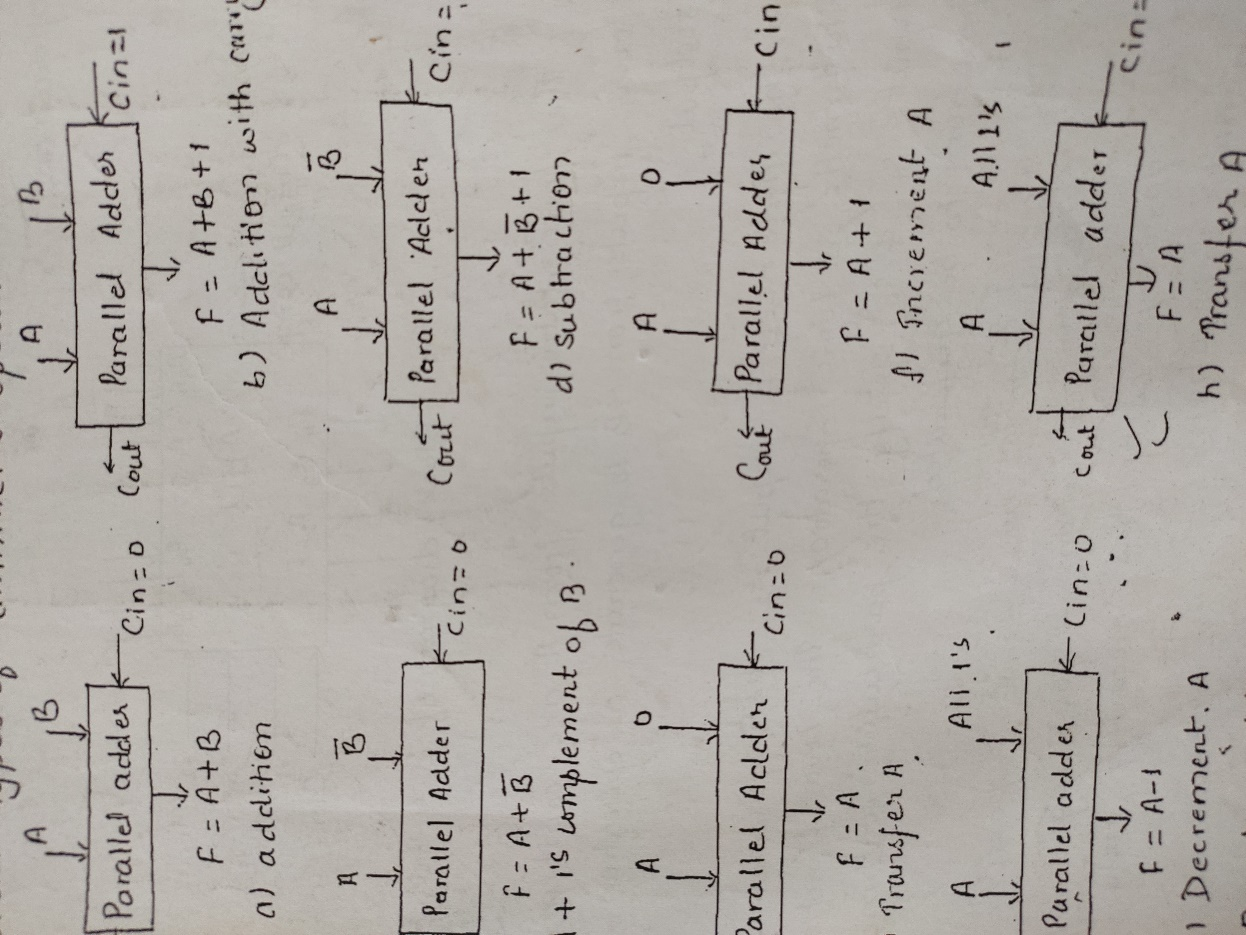 A B
Parallel adder
Cin = 0
F = A+B
a) addition
A B
Parallel Adder
Cin=1
Cout
F = A+B+1
b) Addition with carry
A B̅
Parallel Adder
Cin = 0
F = A+B̅
+ 1's complement of B.
A B̅
Parallel Adder
Cin =
Cout
F = A+B̅+1
d) subtraction
A 0
Parallel Adder
Cin=0
F = A
Transfer A
A 0
Parallel Adder
Cin
Cout
F = A + 1
f) Increment A
A All 1's
Parallel adder
Cin=0
F = A-1
) Decrement. A
A All 1's
Parallel adder
Cin=
Cout
F = A
h) Transfer A